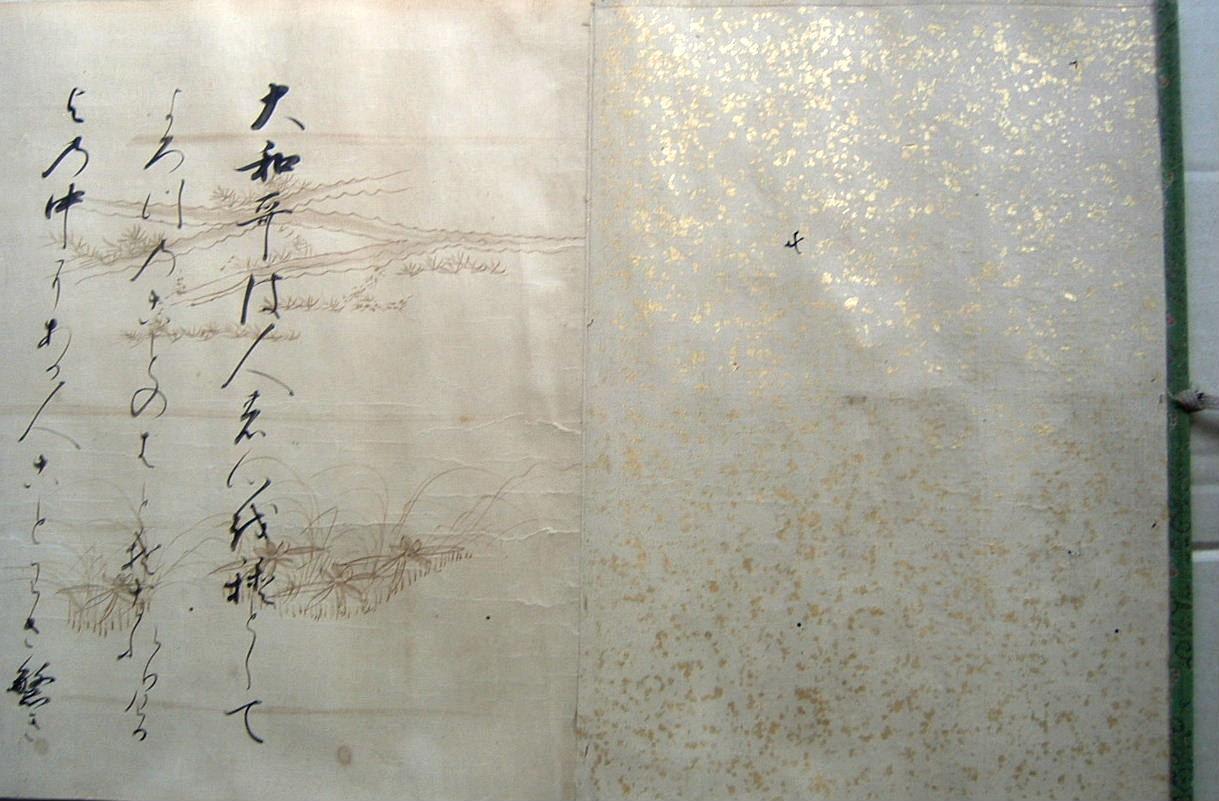 大和哥は人の心を種として
よろつのことのはとそなれりける
よの中にある人ことわさ繁き